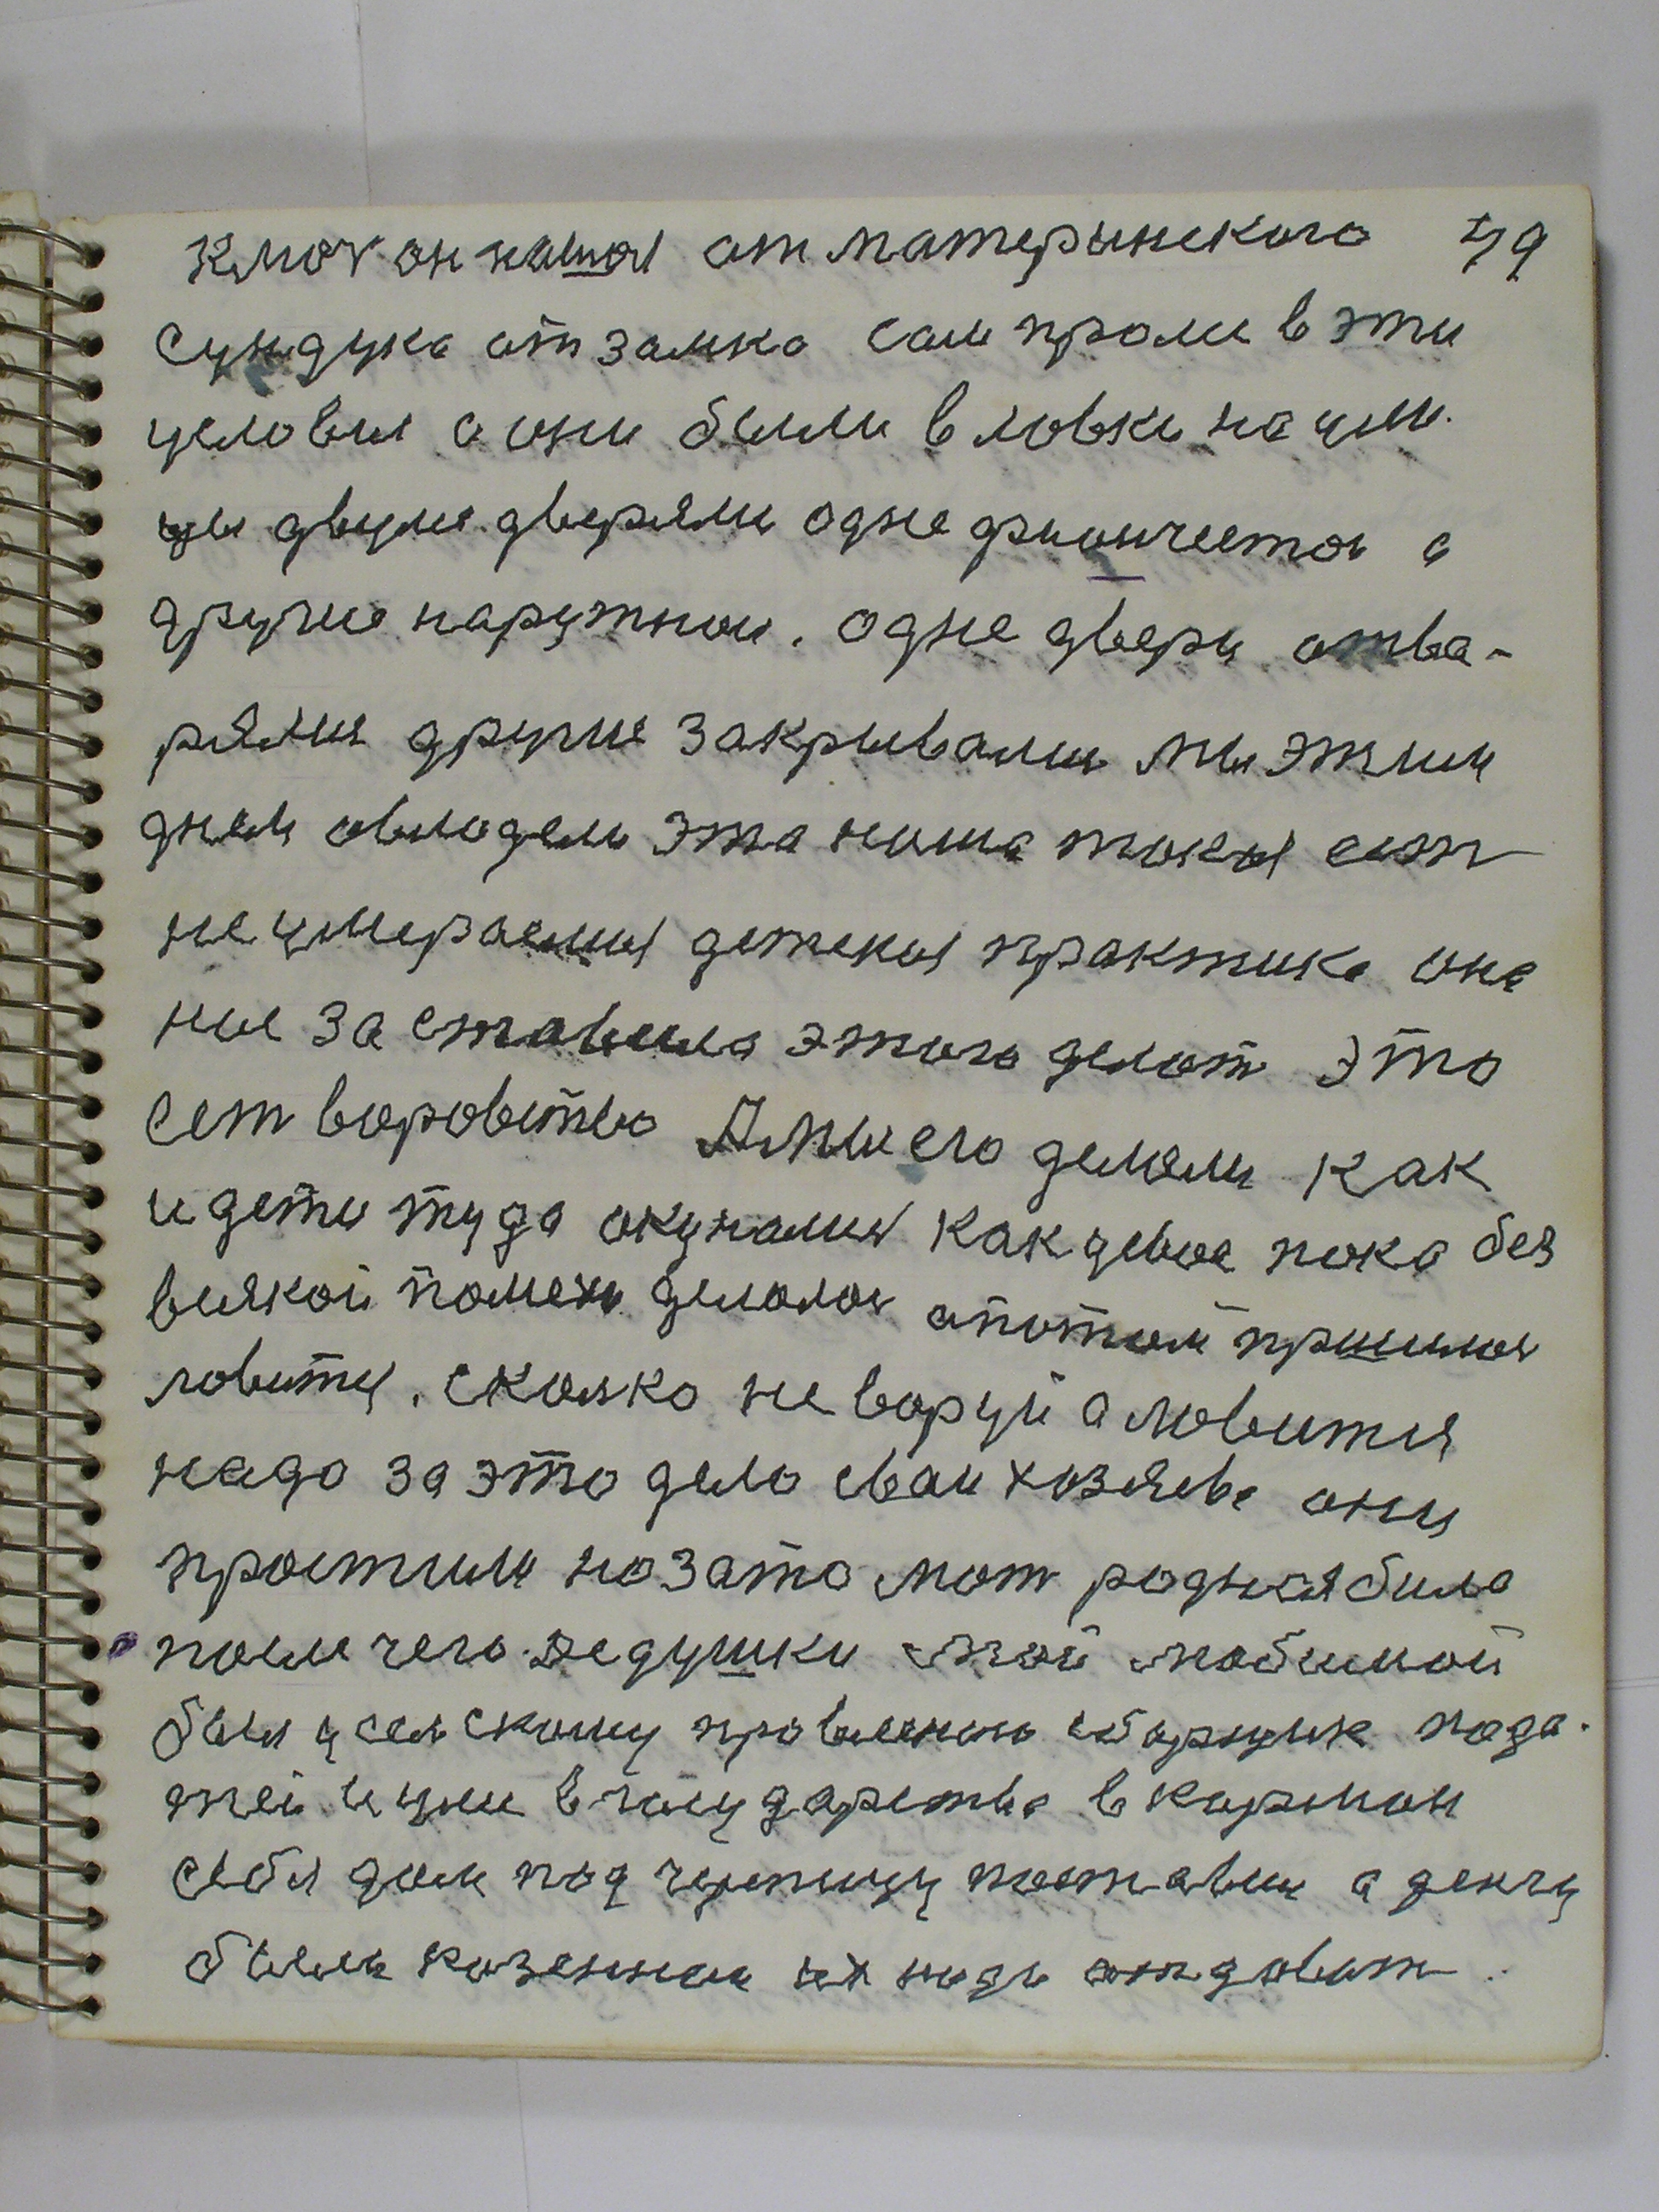 Ключ он нашол от матерынского 79
сундука от замка сам промеь в эти
условия а они были в ловки на ули-
цы двумя дверями одне фиончистои а
другие наружнои. одне двери отва-
ряли другие закрывали мы этим
днем овлодели эта наша такая есть
не умираемая детская практика она
нас заставила этого делат это
сет воровство А мы его делали как
и дети туда окуналися как девое пока без
всякой помехи делолос а потом пришлос
ловится. сколко не воруй а ловится
надо за это дело сваи хозяева они
простили но зато мат родная била
после чего дедушки мой любимой
был у селскому правлению сборщик пода-
тей и узял в государства в карман
себя дом под черпицу поставил а денги
были козеннои их надо отдават.